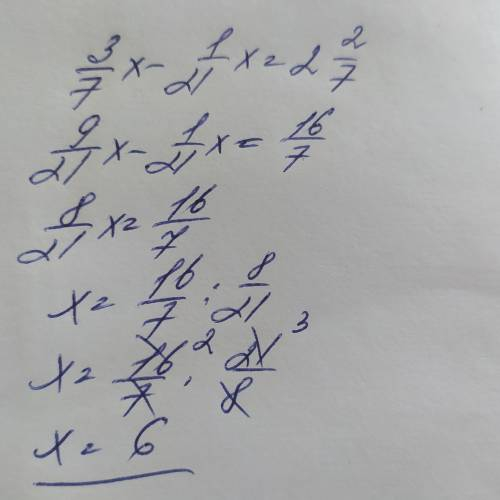 3/7 x - 1/21 x = 2 2/7
9/21 x - 1/21 x = 16/7
8/21 x = 16/7
x = 16/7 : 8/21
x = 16/7 2 · 21/8 3
x = 6